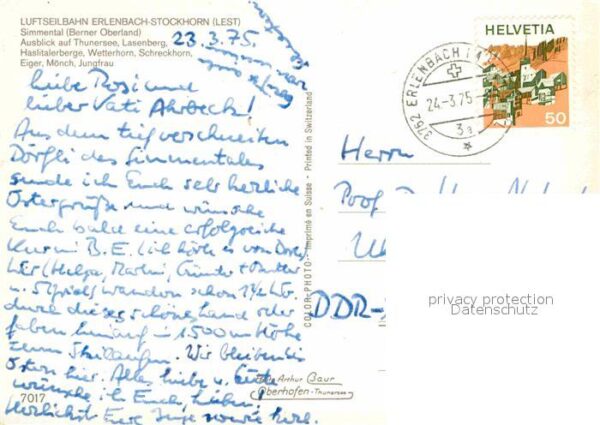 LUFTSEILBAHN ERLENBACH-STOCKHORN (LEST)
Simmental (Berner Oberland)
Ausblick auf Thunersee, Lasenberg,
Haslitalerberge, Wetterhorn, Schreckhorn,
Eiger, Mönch, Jungfrau
23.3.75.
Liebe Rosi und
lieber Vati Ahrbeck!
Aus dem tief verschneiten
Dörfli des Simmentales
sende ich Euch sehr herzliche
Ostergrüße und wünsche
Euch bald eine erfolgreiche
Kur in B.E. (ich hörte es von
(Helga, Martin, Günter + Mutter
u. wandern schon 1½
durch dieses schöne Land oder
fahren hinauf in 1500 m Höhe
zum Skilaufen. Wir bleiben bis
Ostern hier. Alles Liebe u. Gute
wünsche ich Euch Lieben!
Herzlichst Eure Inge sowie
7017
Foto Arthur Baur
Oberhofen-Thunersee
COLOR-PHOTO - Imprimé en Suisse - Printed in Switzerland
HELVETIA
50
3762 ERLENBACH I.
24-3.75
3a
Herrn
Prof. D
DDR-
privacy protection
Datenschutz